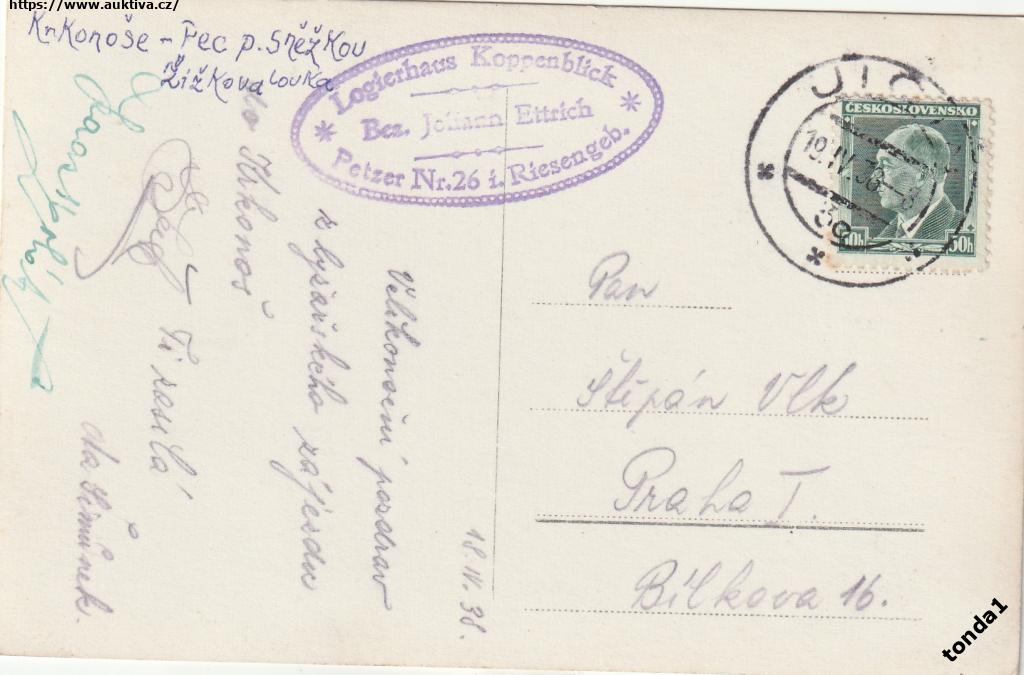 https://www.auktiva.cz/
Krkonoše - Pec p. Sněžkou
Žižkova louka
Logierhaus Koppenblick
Bez. Johann Ettrich
Petzer Nr. 26 i. Riesengeb.
JIČ
19.IV.38
ČESKOSLOVENSKO
50h 50h
18.IV.38.
Velikonoční pozdrav
z lyžařského zájezdu
do Krkonoš
Ti zasílá
Šimůnek.
Pan
Štěpán Vlk
Praha I.
Bílkova 16.
tonda1